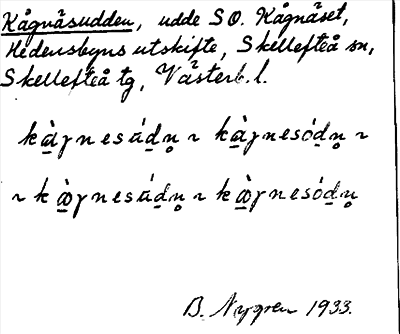 Kågnäsudden, udde S O. Kågnäset,
Hedensbyns utskifte, Skellefteå sn,
Skellefteå tg, Västerb. l.
kà̱ɣnesúd̲n̥ ~ kà̱ɣnesód̲n̥ ~
~ kæ̱̀ɣnesúd̲n̥ ~ kæ̱̀ɣnesód̲n̥
B. Nygren 1933.